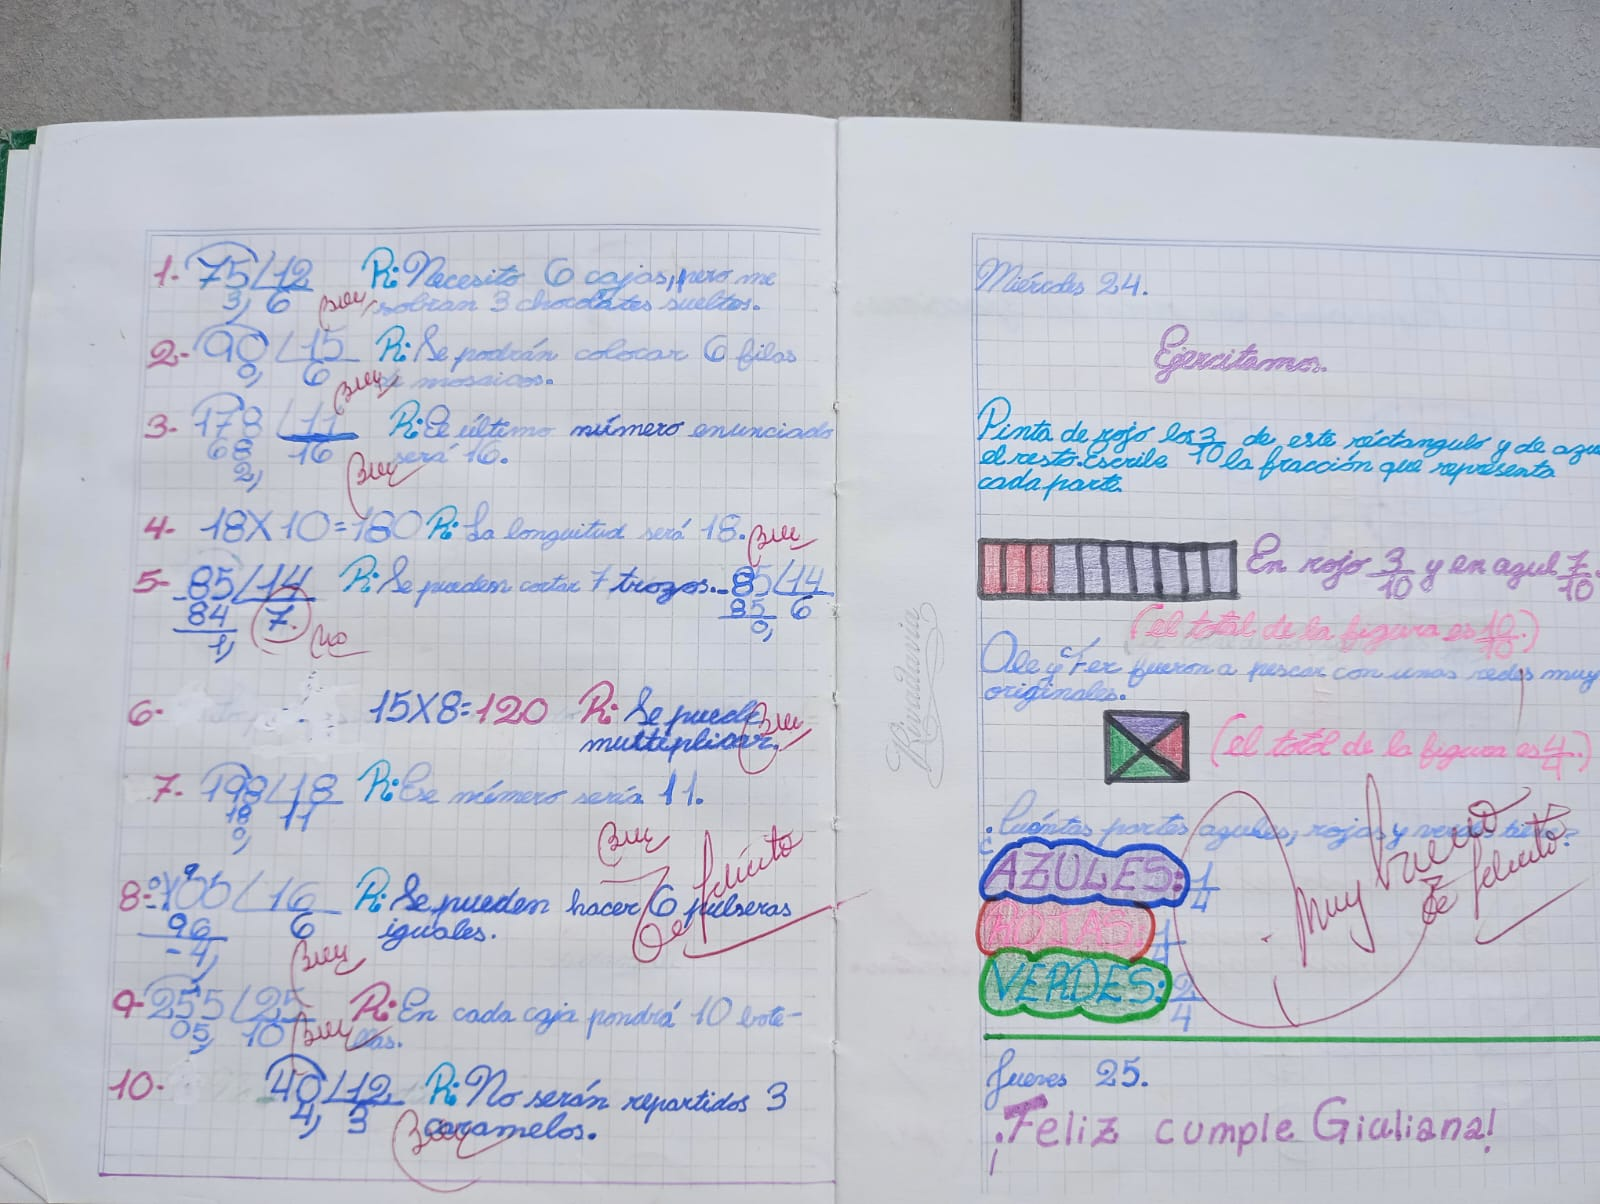 1- 75/12 R: Necesito 6 cajas, pero me
3, 6 Bien sobran 3 chocolates sueltos.
2- 90/15 R: Se podrán colocar 6 filas
0, 6 Bien de mosaicos.
3- 178/11 R: El último número enunciado
68 16 será 16.
2, Bien
4- 18X10=180 R: La longuitud será 18. Bien
5- 85/14 R: Se pueden cortar 7 trozos. -85/14
84 7. no 85 6
1, 0,
6- 15X8=120 R: Se puede Bien
multiplicar.
7- 198/18 R: Ese número sería 11.
18 11
0, Bien
8- 100/16 R: Se pueden hacer 6 pulseras
96 6 iguales. Te felicito
-4, Bien
9- 255/25 R: En cada caja pondrá 10 bote-
05, 10 Bien llas.
10- 40/12 R: No serán repartidos 3
4, 3 caramelos.
Bien
Miércoles 24.
Ejercitamos.
Pinta de rojo los 3/10 de este réctangulo y de azul
el resto. Escribe la fracción que representa
cada parte.
En rojo 3/10 y en azul 7/10.
(el total de la figura es 10/10.)
Ole y Fer fueron a pescar con unas redes muy
originales.
(el total de la figura es 4/4.)
¿Cuántas partes azules, rojas y verdes tiene?
AZULES: 1/4
ROJAS: 1/4
VERDES: 2/4
Muy bueno
Te felicito
Jueves 25.
¡Feliz cumple Giuliana!
Rivadavia